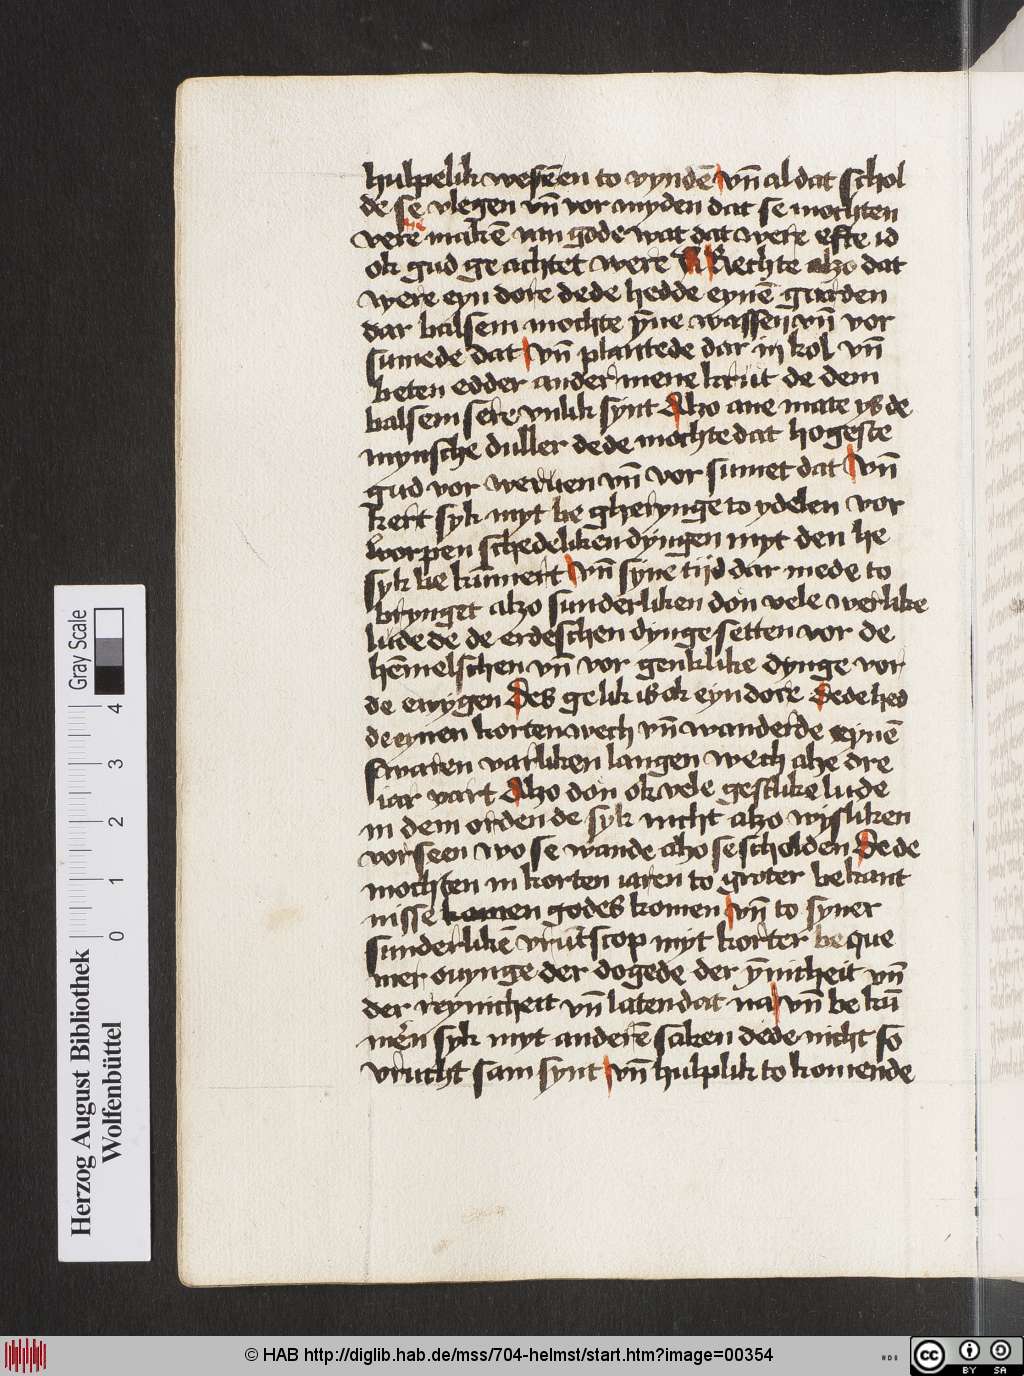 hulpelik weseēn to vyndē vn̄ al dat schol
de se vlegen vn̄ vor myden dat se mochten
verē makē van gode wat dat were efte id
ok gud ge achtet were Rechte alzo dat
were eyn dore dede hedde eynē garden
dar balsem mochte ȳne wassen vn̄ vor
sumede dat vn̄ plantede dar in kol vn̄
beten edder ander mene krut de dem
balsem sere vnlik synt Alzo ane mate ys de
mynsche duller dede mochte dat hogeste
gud vor weruen vn̄ vor sumet dat vn̄
kert syk myt be gherynge to ydelen vor
worpen schedeliken dyngen myt den he
syk be kūmert vn̄ synē tijd dar mede to
brynget alzo sunderliken don vele werlike
lude de de erdeschen dynge setten vor de
hēmelschen vn̄ vor genklike dynge vor
de ewygen Des gelik is ok eyn dore Dede hed
de eynen korten wech vn̄ wanderde eynē
swaren varliken langen wech ahe dre
iar vart Alzo don ok vele gestlike lude
in dem orden de syk nicht alzo wysliken
vorseen wo se wande aho se scholden De de
mochten in korten iaren to groter bekant
nisse godes komen vn̄ to syner
sunderlikē vrūtscop myt korter beque
mer ouynge der dogede der ȳnicheit vn̄
der reynicheit vn̄ laten dat na vn̄ be kū
mēn syk myt anderē saken dede nicht so
vrucht sam synt vn̄ hulplik to komende
Herzog August Bibliothek
Wolfenbüttel
0 1 2 3 4
Gray Scale
© HAB http://diglib.hab.de/mss/704-helmst/start.htm?image=00354
cc BY SA